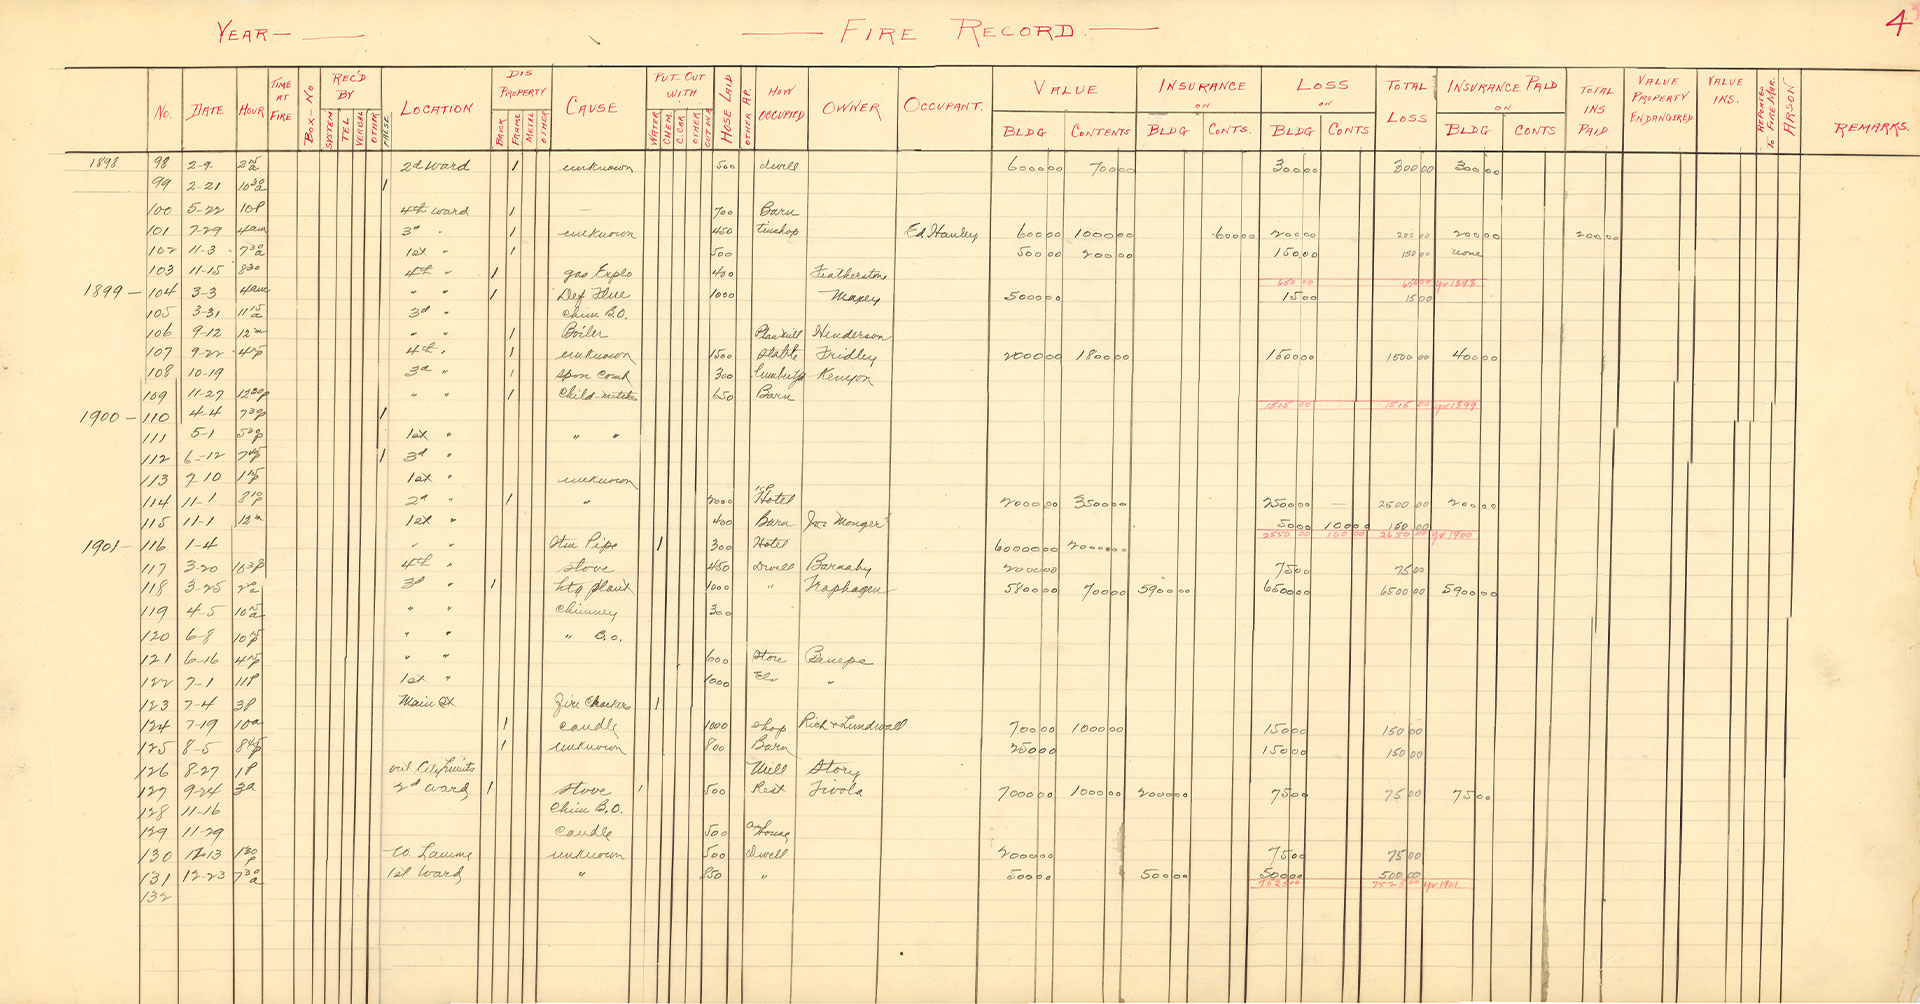 YEAR — FIRE RECORD 4
No. DATE HOUR TIME AT FIRE BOX-NO REC'D BY SYSTEM TEL VERBAL OTHER FALSE LOCATION DIS PROPERTY BRICK FRAME METAL OTHER CAUSE PUT-OUT WITH WATER CHEM. C.CAR. OTHER OUT ON AR HOSE LAID OTHER AP. HOW OCCUPIED OWNER OCCUPANT. VALUE ON BLDG CONTENTS INSURANCE ON BLDG CONTS. LOSS ON BLDG CONTS TOTAL LOSS INSURANCE PAID ON BLDG CONTS TOTAL INS PAID VALUE PROPERTY ENDANGERED VALUE INS. REPORTED TO FIRE MAR. ARSON REMARKS.
1898 98 2-9 2 15 a 2d Ward 1 unknown 500 dwell 6000 00 700 00 300 00 300 00 300 00
99 2-21 10 30 a 1
100 5-22 10P 4th Ward 1 — 700 Barn
101 7-29 4am 3d " 1 unknown 450 tinshop Ed Hanley 600 00 1000 00 600 00 200 00 200 00 200 00 200 00
102 11-3 7 30 a 1st " 1 500 500 00 200 00 150 00 150 00 none
103 11-15 8 30 4th " 1 gas Explo 400 Featherstone
650 00 650 00 yr 1898
1899 — 104 3-3 4am " " 1 Def Flue 1000 Maxey 5000 00 15 00 15 00
105 3-31 11 15 a 3d " Chim B.O.
106 9-12 12m " " 1 Boiler Plan Mill Henderson
107 9-22 4 15 P 4th " 1 unknown 1500 Stable Fridley 2000 00 1800 00 1500 00 1500 00 400 00
108 10-19 3d " 1 spon Comb 300 lumber Kenyon
109 11-27 12 30 P " " 1 Child-matches 650 Barn
1515 00 1515 00 yr 1899
1900 — 110 4-4 7 30 P 1
111 5-1 5 30 P 1st " " "
112 6-12 7 45 P 1 3d "
113 7-10 1 15 P 1st " unknown
114 11-1 8 10 P 2d " 1 " 2000 Hotel 2000 00 3500 00 2500 00 — 2500 00 200 00
115 11-1 12m 1st " 400 Barn Joe Monger 50 00 100 00 150 00
2550 00 100 00 2650 00 yr 1900
1901 — 116 1-4 " " Stm Pipe 1 300 Hotel 60000 00 20000 00
117 3-20 10 30 P 4th " stove 450 Dwell Barnaby 2000 00 75 00 75 00
118 3-25 2a 3d " 1 htg plant 1000 " Traphagen 5800 00 700 00 5900 00 6500 00 6500 00 5900 00
119 4-5 10 15 a " " chimney 300
120 6-8 10 15 P " " " B.O.
121 6-16 4 15 P " " 600 Store Benepe
122 7-1 11P 1st " 1000 Elv "
123 7-4 3P Main St Fire Crackers 1
124 7-19 10a 1 candle 1000 shop Rich & Lundwall 700 00 1000 00 150 00 150 00
125 8-5 8 45 P 1 unknown 800 Barn 250 00 150 00 150 00
126 8-27 1P out City Limits Mill Story
127 9-24 3a 2d Ward 1 stove 1 500 Rest Tivola 7000 00 1000 00 2000 00 75 00 75 00 75 00
128 11-16 Chim B.O.
129 11-29 candle 500 House
130 12-13 1 30 P W. Lamme unknown 500 Dwell 2000 00 75 00 75 00
131 12-23 7 30 a 1st Ward " 850 " 500 00 500 00 500 00 500 00
7525 00 7525 00 yr 1901
132